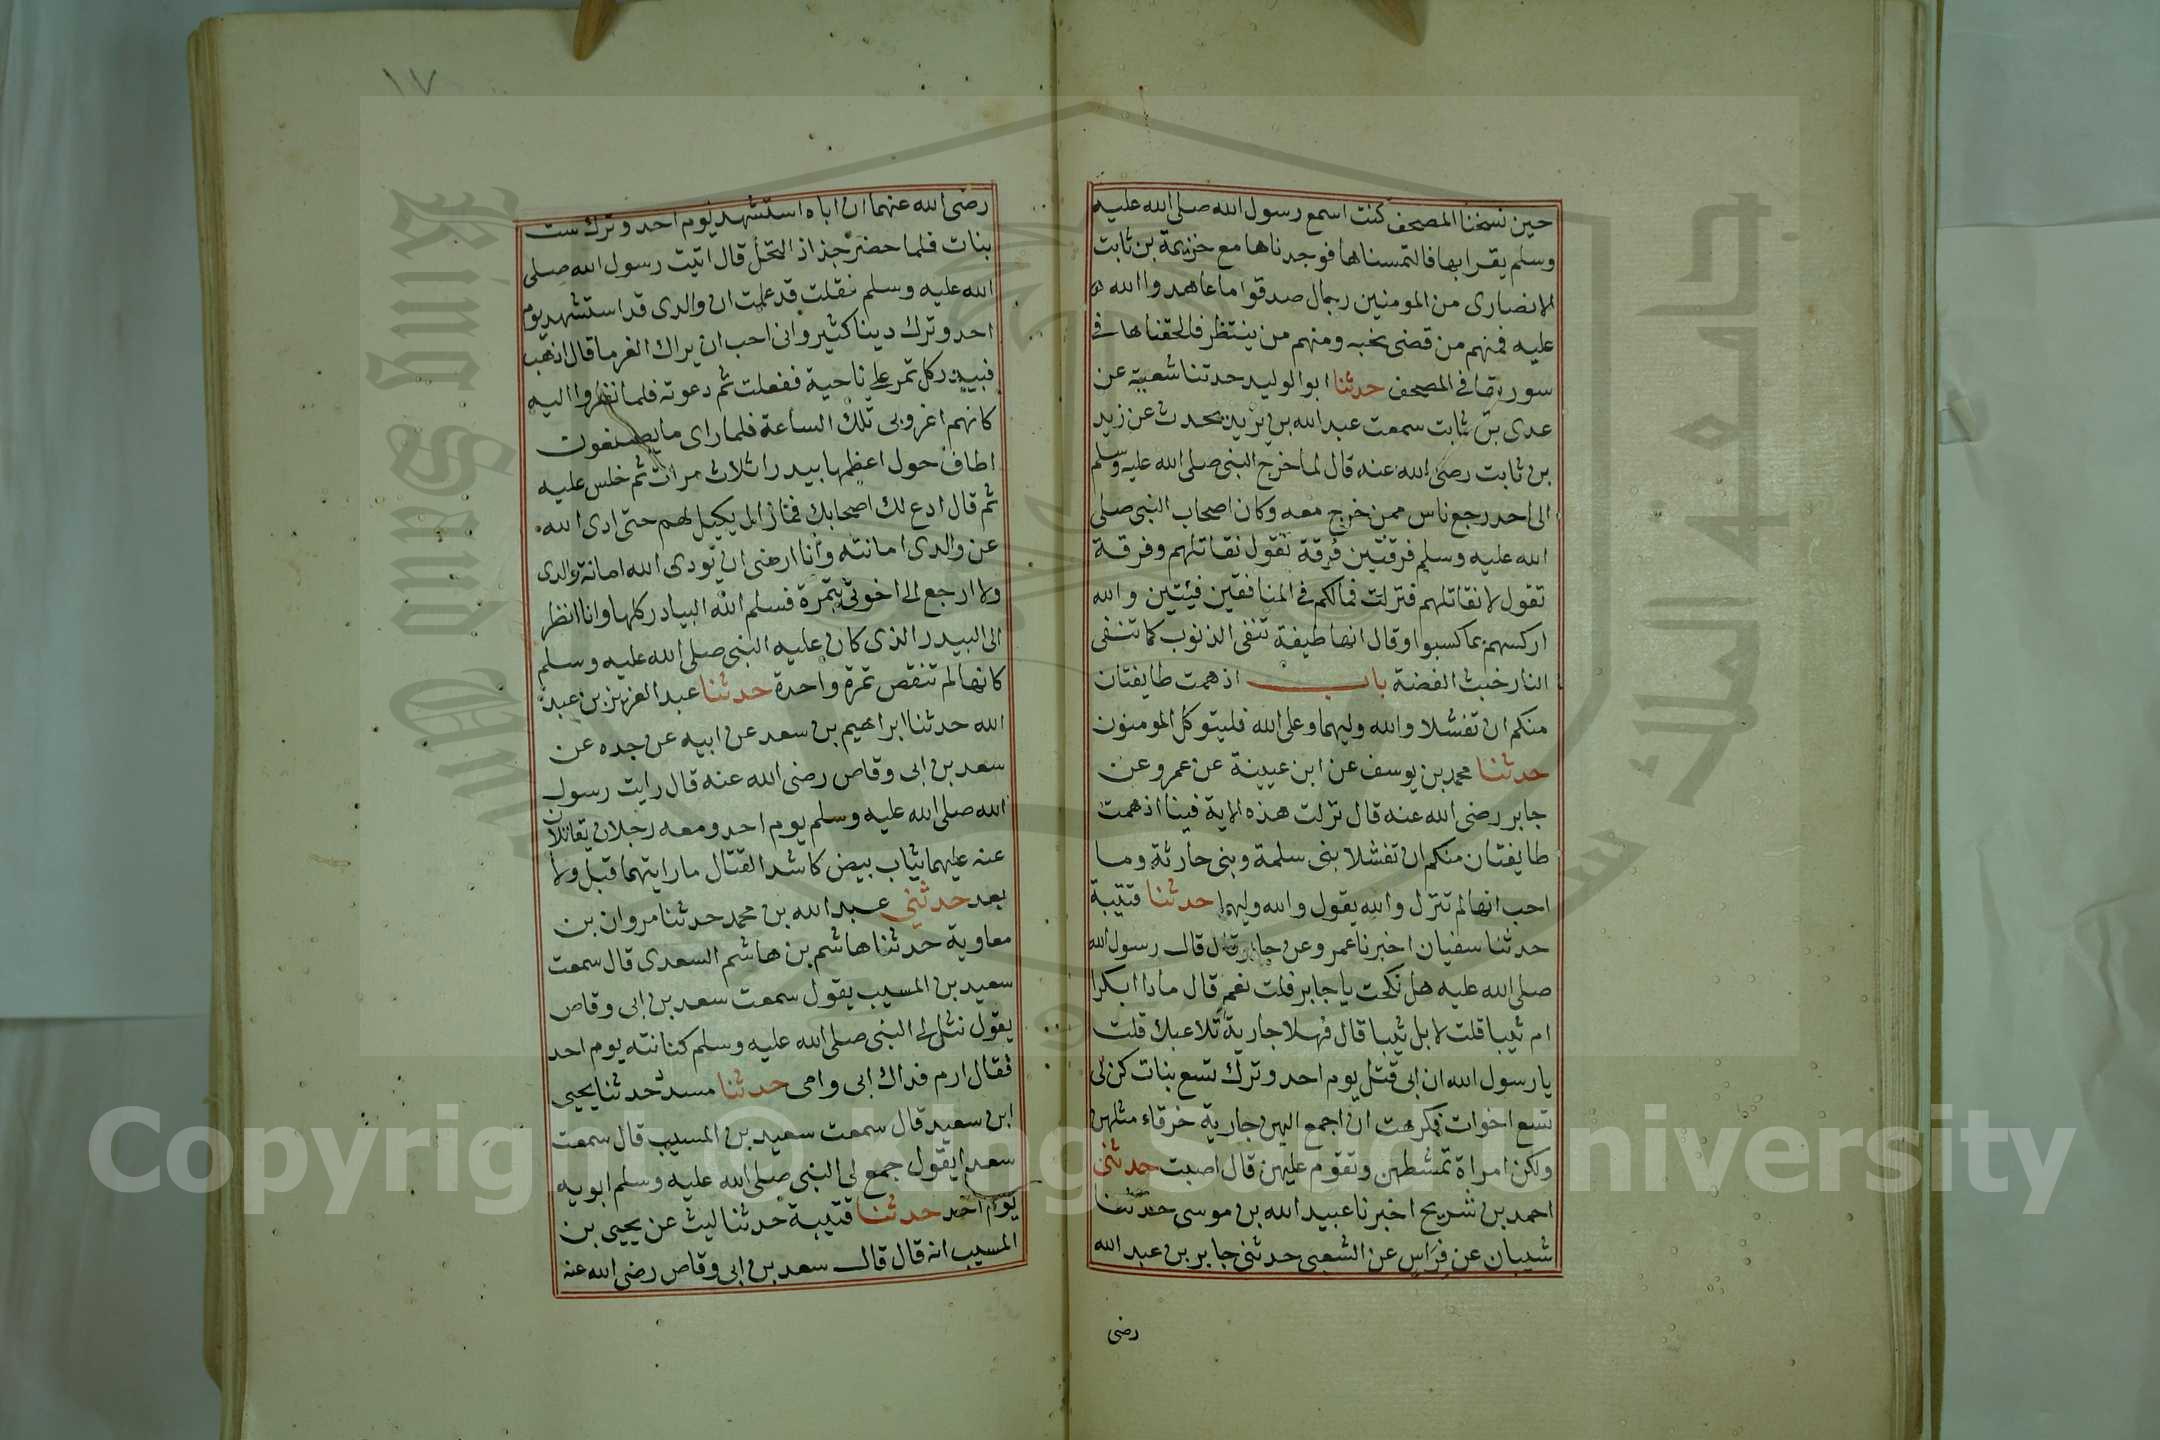 حين نسخنا المصحف كنت اسمع رسول الله صلى الله عليه
وسلم يقرا بها فالتمسناها فوجدناها مع خزيمة بن ثابت
الانصارى من المومنين رجال صدقوا ما عاهدوا الله
عليه فمنهم من قضى نحبه ومنهم من ينتظر فالحقناها في
سورتها في المصحف حدثنا ابو الوليد حدثنا شعبة عن
عدى بن ثابت سمعت عبد الله بن يزيد يحدث عن زيد
بن ثابت رضى الله عنه قال لما خرج النبى صلى الله عليه وسلم
الى احد رجع ناس ممن خرج معه وكان اصحاب النبى صلى
الله عليه وسلم فرقتين فرقة تقول نقاتلهم وفرقة
تقول لا نقاتلهم فنزلت فمالكم في المنافقين فيئتين والله
اركسهم بما كسبوا وقال انها طيفة تنفى الذنوب كما تنفى
النار خبث الفضة باب اذ همت طايفتان
منكم ان تفشلا والله وليهما وعلى الله فليتوكل المومنون
حدثنا محمد بن يوسف عن ابن عيينة عن عمرو عن
جابر رضى الله عنه قال نزلت هذه الاية فينا اذ همت
طايفتان منكم ان تفشلا بنى سلمة وبنى حارثة وما
احب انها لم تنزل والله يقول والله وليهما حدثنا قتيبة
حدثنا سفيان اخبرنا عمرو عن جابر قال قال رسول الله
صلى الله عليه هل نكحت يا جابر قلت نعم قال ماذا ابكرا
ام ثيبا قلت لا بل ثيبا قال فهلا جارية تلاعبك قلت
يا رسول الله ان ابى قتل يوم احد وترك تسع بنات كن لى
تسع اخوات فكرهت ان اجمع اليهن جارية خرقاء مثلهن
ولكن امراة تمشطهن وتقوم عليهن قال اصبت حدثنى
احمد بن شريح اخبرنا عبيد الله بن موسى حدثنا
شيبان عن فراس عن الشعبى حدثنى جابر بن عبد الله
رضى
١٧
رضى الله عنهما ان اباه استشهد يوم احد وترك ست
بنات فلما حضر جذاذ النخل قال اتيت رسول الله صلى
الله عليه وسلم فقلت قد علمت ان والدى قد استشهد يوم
احد وترك دينا كثير وانى احب ان يراك الغرما قال اذهب
فبيدر كل تمر على ناحية ففعلت ثم دعوته فلما نظروا اليه
كانهم اغروبى تلك الساعة فلما راى ما يصنعون
اطاف حول اعظمها بيدرا ثلاث مرات ثم جلس عليه
ثم قال ادع لك اصحابك فما زال يكيل لهم حتى ادى الله
عن والدى امانته وأنا ارضى ان يودى الله امانة والدى
ولا ارجع الى اخوتى بتمرة فسلم الله البيادر كلها وانا انظر
الى البيدر الذى كان عليه النبى صلى الله عليه وسلم
كانها لم تنقص تمرة واحدة حدثنا عبد العزيز بن عبد
الله حدثنا ابراهيم بن سعد عن ابيه عن جده عن
سعد بن ابى وقاص رضى الله عنه قال رايت رسول
الله صلى الله عليه وسلم يوم احد ومعه رجلان يقاتلان
عنه عليهما ثياب بيض كاشد القتال ما رايتهما قبل ولا
بعد حدثني عبد الله بن محمد حدثنا مروان بن
معاوية حدثنا هاشم بن هاشم السعدى قال سمعت
سعيد بن المسيب يقول سمعت سعد بن ابى وقاص
يقول نثل لى النبى صلى الله عليه وسلم كنانته يوم احد
فقال ارم فداك ابى وامى حدثنا مسدد حدثنا يحيى
ابن سعيد قال سمعت سعيد بن المسيب قال سمعت
سعدا يقول جمع لى النبى صلى الله عليه وسلم ابويه
يوم احد حدثنا قتيبة حدثنا ليث عن يحيى بن
المسيب انه قال قال سعد بن ابى وقاص رضى الله عنه
King Saud University
جامعة الملك سعود
Copyright © King Saud University